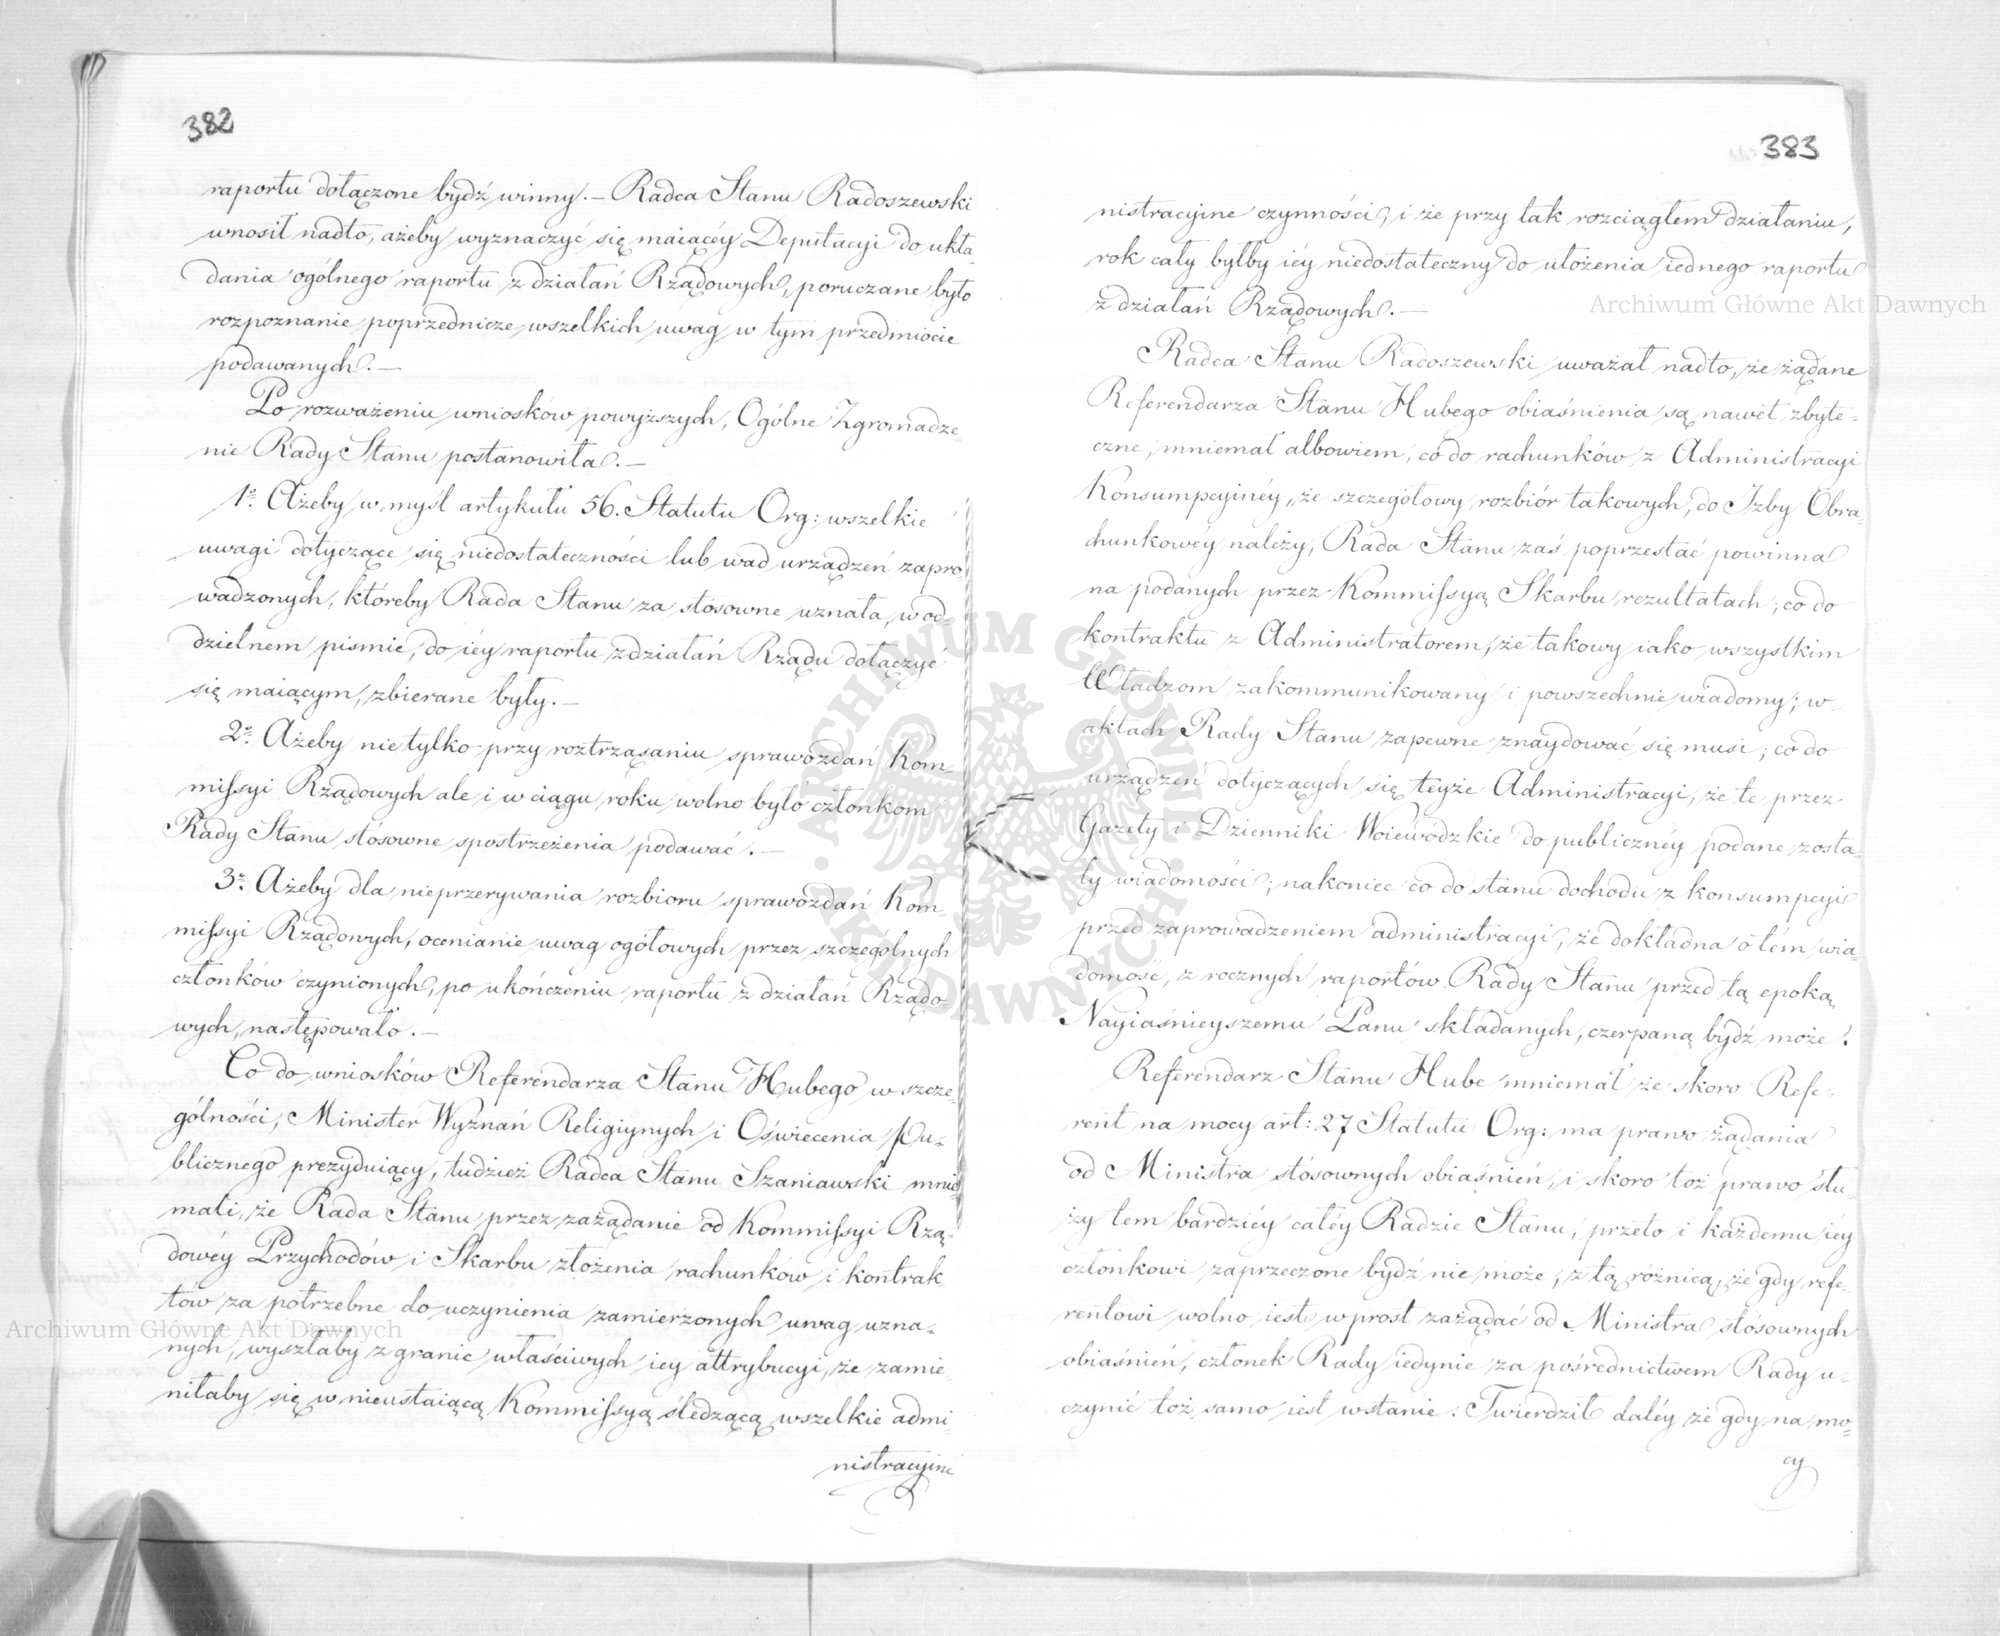 382
raportu dołączone bydź winny. — Radca Stanu Radoszewski
wnosił nadto, ażeby wyznaczyć się maiącéy Deputacyi do ukła-
dania ogólnego raportu z działań Rządowych, poruczane było
rozpoznanie poprzednicze wszelkich uwag w tym przedmiocie
podawanych. —
Po rozważeniu wniosków powyższych, Ogólne Zgromadze-
nie Rady Stanu postanowiła. —
1º Ażeby w myśl artykułu 56. Statutu Org: wszelkie
uwagi dotyczące się niedostateczności lub wad urządzeń zapro-
wadzonych, któreby Rada Stanu za stosowne uznała, w od-
dzielnem piśmie, do iéy raportu z działań Rządu dołączyć
się maiącym, zbierane były. —
2º Ażeby nietylko przy roztrząsaniu sprawozdań Kom-
missyi Rządowych ale i w ciągu roku wolno było członkom
Rady Stanu stósowne spostrzeżenia podawać. —
3º Ażeby dla nieprzerywania rozbioru sprawozdań Kom-
missyi Rządowych, ocenianie uwag ogółowych przez szczególnych
członków czynionych, po ukończeniu raportu z działań Rządo-
wych, następowało. —
Co do wniosków Referendarza Stanu Hubego w szcze-
gólności, Minister Wyznań Religiynych i Oświecenia Pu-
blicznego prezyduiący, tudzież Radca Stanu Szaniawski mnie
mali, że Rada Stanu przez zażądanie od Kommissyi Rzą-
dowéy Przychodów i Skarbu złożenia rachunków i kontrak
tów za potrzebne do uczynienia zamierzonych uwag uzna-
nych, wyszłaby z granic właściwych iey attrybucyi, że zamie
niłaby się w nieustaiącą Kommissyą śledzącą wszelkie admi-
nistracyine
383
nistracyine czynności, i że przy tak rozciągłem działaniu,
rok cały byłby iéy niedostateczny do ułożenia iednego raportu
z działań Rządowych. —
Radca Stanu Radoszewski uważał nadto, że żądane
Referendarza Stanu Hubego obiaśnienia są nawet zbyte-
czne, mniemał albowiem, co do rachunków z Administracyi
Konsumpcyinéy, że szczegółowy rozbiór takowych, do Izby Obra-
chunkowéy należy, Rada Stanu zaś poprzestać powinna
na podanych przez Kommissyą Skarbu rezultatach; co do
kontraktu z Administratorem, że takowy iako wszystkim
Władzom zakommunikowany i powszechnie wiadomy; w-
aktach Rady Stanu zapewne znaydować się musi; co do
urządzeń dotyczących się teyże Administracyi, że te przez
Gazety i Dzienniki Woiewódzkie do publicznéy podane zosta-
ły wiadomości; nakoniec co do stanu dochodu z konsumpcyi
przed zaprowadzeniem administracyi, że dokładna o tém wia-
domość, z rocznych raportów Rady Stanu przed tą epoką
Nayiaśnieyszemu Panu składanych, czerpaną bydź może.
Referendarz Stanu Hube mniemał że skoro Refe-
rent na mocy art: 27 Statutu Org: ma prawo żądania
od Ministra stósownych obiaśnień, i skoro toż prawo słu-
ży tem bardziéy całéy Radzie Stanu, przeto i każdemu iéy
członkowi zaprzeczone bydź nie może, z tą różnicą, że gdy refe-
rentowi wolno iest wprost zażądać od Ministra stósownych
obiaśnień, członek Rady iedynie za pośrednictwem Rady u-
czynić toż samo iest wstanie. Twierdził daléy że gdy na mo-
cy
Archiwum Główne Akt Dawnych
Archiwum Główne Akt Dawnych
ARCHIWUM GŁÓWNE AKT DAWNYCH